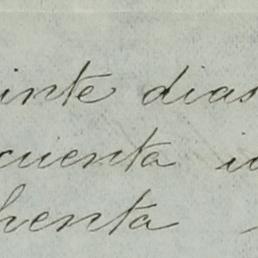 inte dias
cuenta i
henta